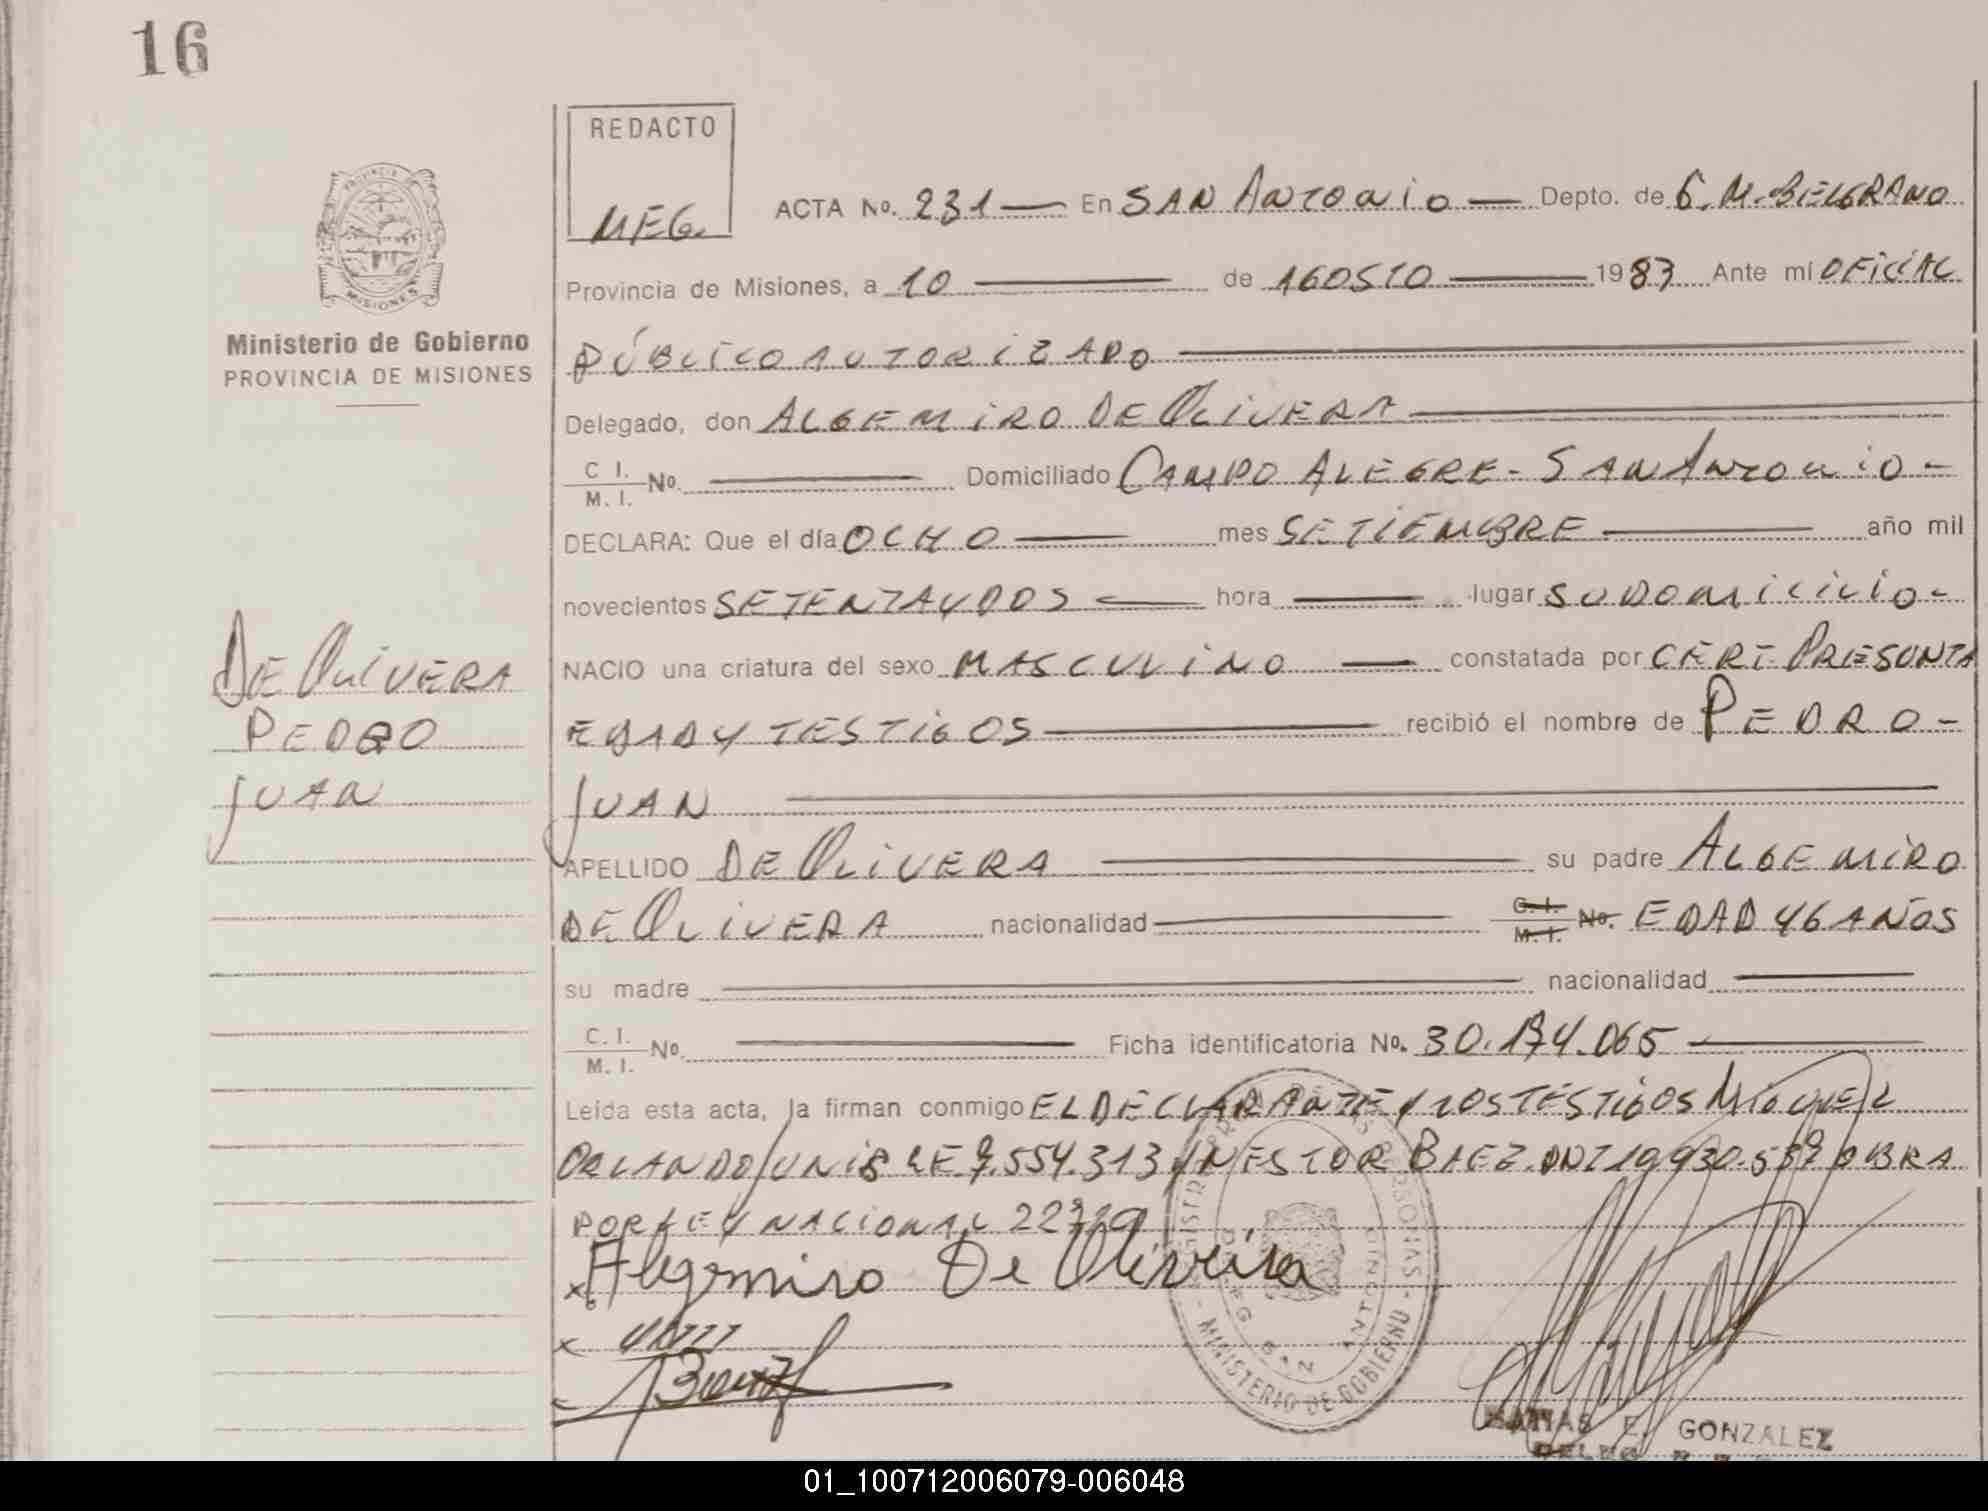 16
REDACTO
MEG.
ACTA No. 231 En SAN ANTONIO Depto. de G. M. BELGRANO
Provincia de Misiones, a 10 de AGOSTO 1983 Ante mí OFICIAL
PÚBLICO AUTORIZADO
PROVINCIA DE
MISIONES
Ministerio de Gobierno
PROVINCIA DE MISIONES
Delegado, don ALGEMIRO DE OLIVERA
C I. M. I. No. Domiciliado CAMPO ALEGRE - SAN ANTONIO -
DECLARA: Que el día OCHO mes SETIEMBRE año mil
novecientos SETENTA Y DOS hora lugar SU DOMICILIO -
NACIO una criatura del sexo MASCULINO constatada por CERT. PRESUNTA
EDAD Y TESTIGOS recibió el nombre de PEDRO -
JUAN
DE OLIVERA
PEDRO
JUAN
APELLIDO DE OLIVERA su padre ALGEMIRO
DE OLIVERA nacionalidad C. I. M. I. No. EDAD 46 AÑOS
su madre nacionalidad
C. I. M. I. No. Ficha identificatoria No. 30.174.065
Leída esta acta, la firman conmigo EL DECLARANTE Y LOS TESTIGOS MIGUEL
ORLANDO JUNIS LE 7.554.313 Y NESTOR BAEZ DNI 19.930.537 OBRA
POR LEY NACIONAL
x Algemiro De Oliveira
x
MINISTERIO DE GOBIERNO
DELEG SAN ANTONIO
MATIAS E. GONZALEZ
01_100712006079-006048